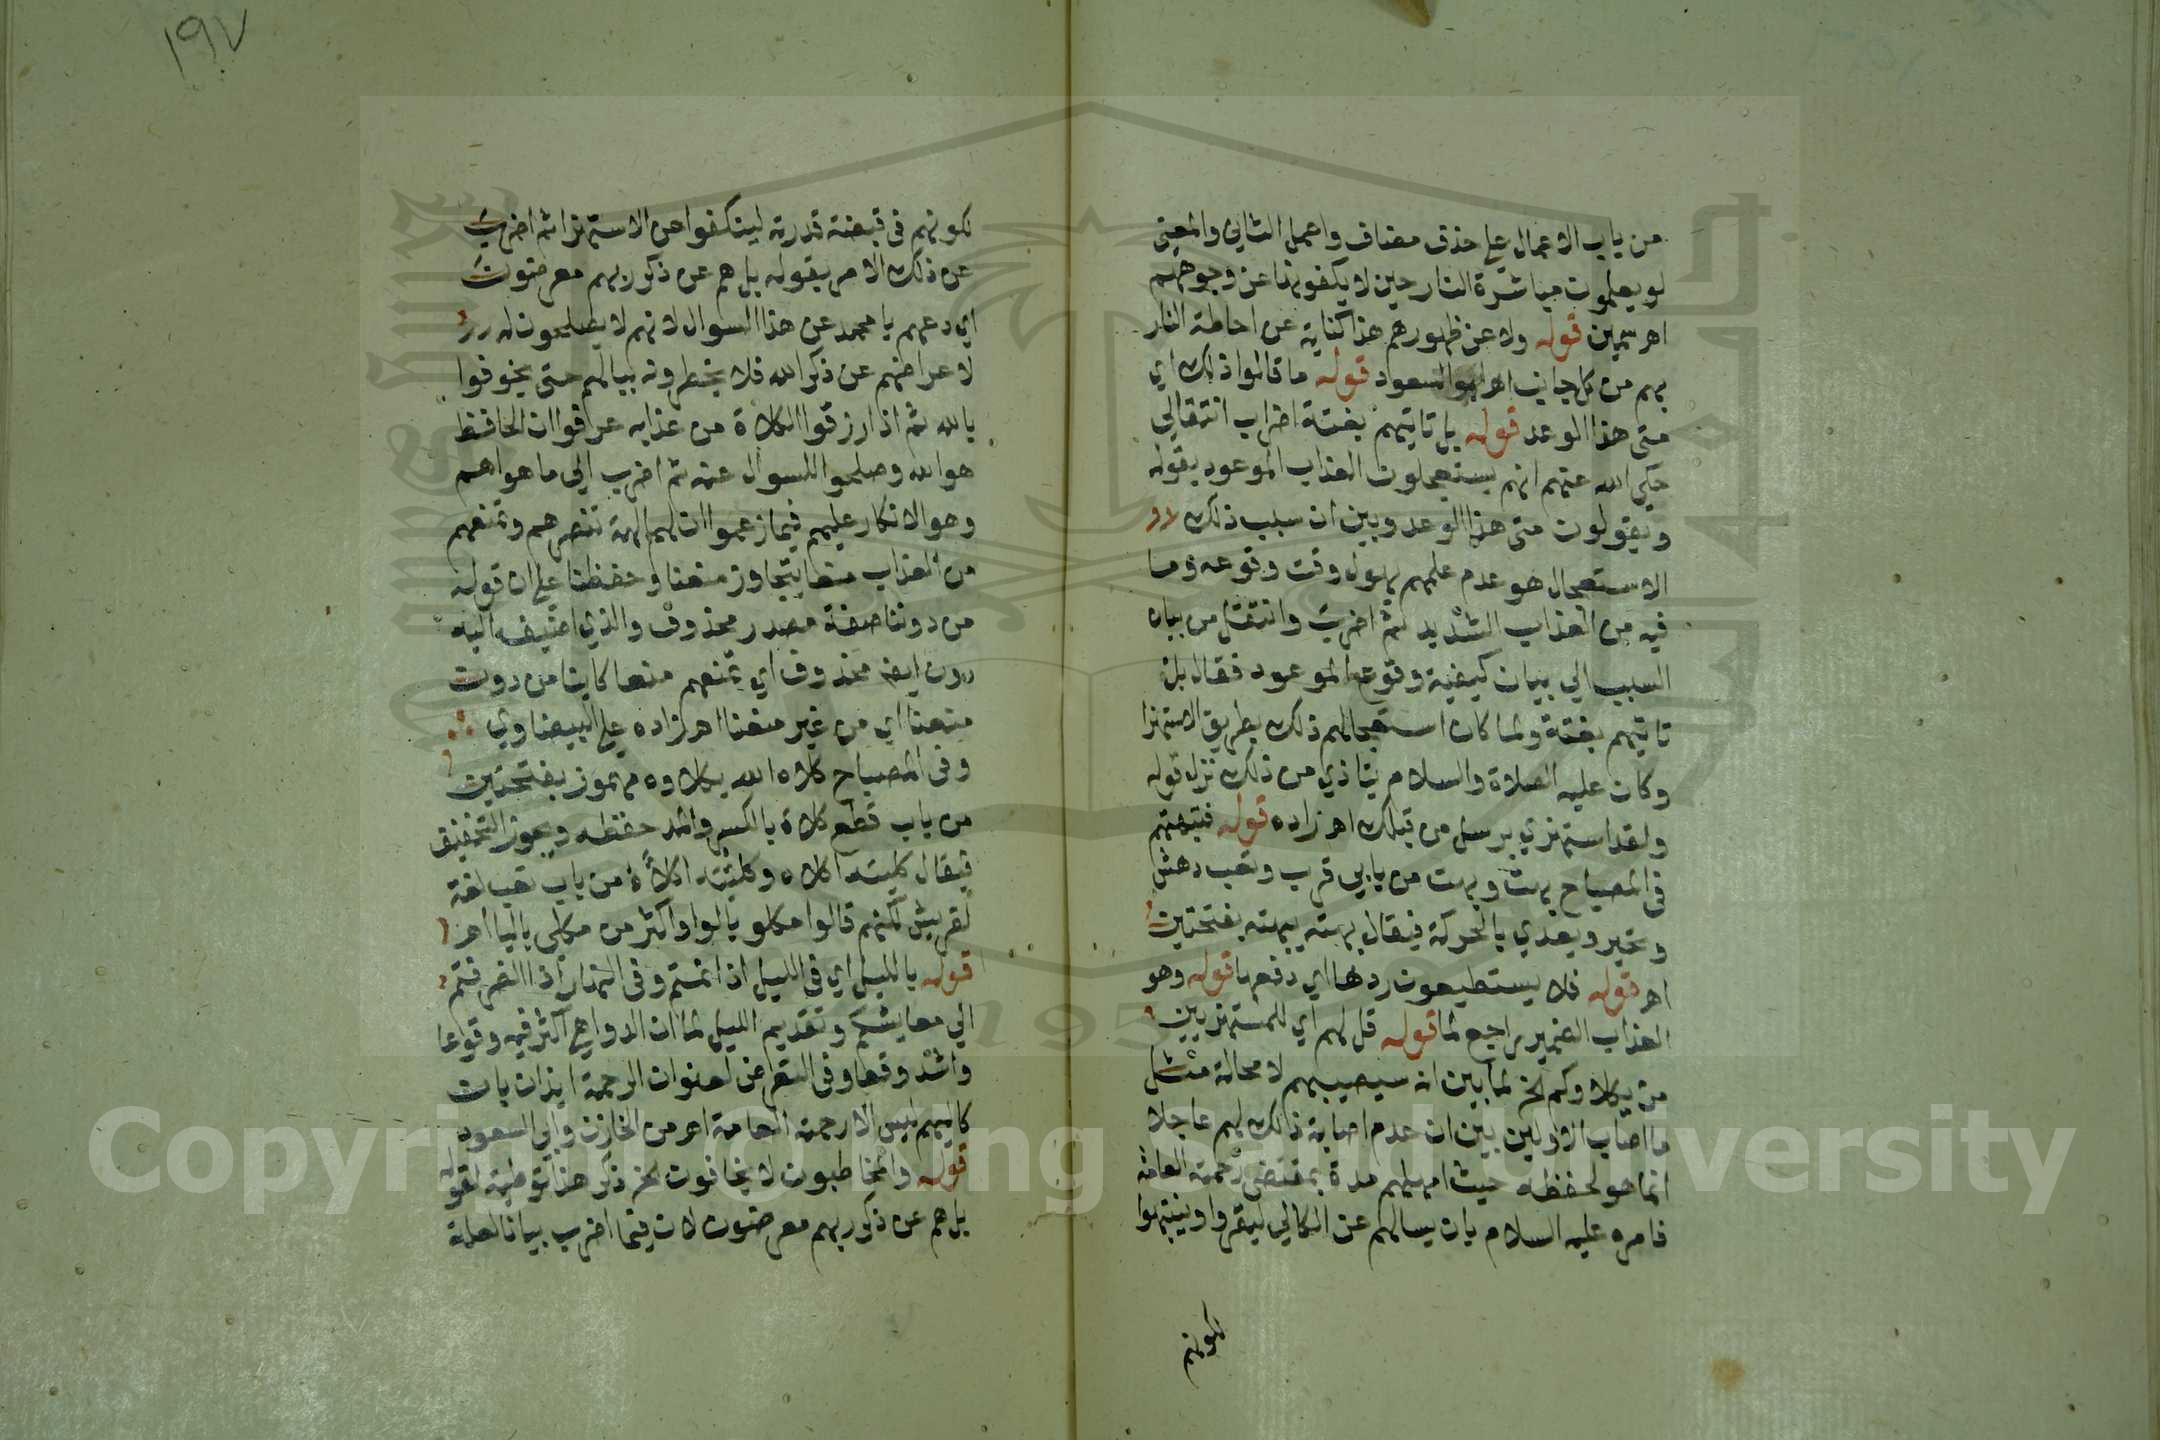 من باب الاعمال على حذف مضاف واعمل الثاني والمعنى
لو يعلمون مباشرة النار حين لا يكفونها عن وجوههم
اهر سمين قوله ولا عن ظهورهم هذا كناية عن احاطة النار
بهم من كل جانب اهر ابو السعود قوله ما قالوا ذلك اي
متى هذا الوعد قوله بل تاتيهم بغتة اضراب انتقالي
حكى الله عنهم انهم يستعجلون العذاب الموعود بقوله
ويقولون متى هذا الوعد وبين ان سبب ذلك
الاستعجال هو عدم علمهم بهول وقت وقوعه وما
فيه من العذاب الشديد ثم اضرب وانتقل من بيان
السبب الي بيان كيفية وقوع الموعود فقال بل
تاتيهم بغتة ولما كان استعجالهم ذلك بطريق الاستهزا
وكان عليه الصلاة والسلام يتاذي من ذلك نزل قوله
ولقد استهزي برسل من قبلك اهر زاده قوله فتبهتهم
في المصباح بهت وبهت من بابي قرب وتعب دهش
وتحير ويعدي بالحركة فيقال بهته يبهته بفتحتين
اهر قوله فلا يستطيعون ردها اي دفعها قوله وهو
العذاب الضمير راجع لما قوله قل لهم اي للمستهزيين
من يكلاوكم الخ لما بين انه سيصيبهم لا محالة مثل
ما اصاب الاولين بين ان عدم اصابة ذلك لهم عاجلا
انما هو لحفظه حيث امهلهم مدة بمقتضى رحمته العامة
فامره عليه السلام بان يسالهم عن الكالي ليقروا وينتبهوا
لكونهم
١٩٧
لكونهم في قبضة قدرته ليتكفوا عن الاستهزا ثم اضرب
عن ذلك الامر بقوله بل هم عن ذكر ربهم معرضون
اي دعهم يا محمد عن هذا السوال لانهم لا يصلحون له
لاعراضهم عن ذكر الله فلا يخطرونه ببالهم حتى يخوفوا
بالله ثم اذا رزقوا الكلاة من عذابه عرفوا ان الحافظ
هو الله وصلحوا للسوال عنه ثم اضرب الى ما هو اهم
وهو الانكار عليهم فيما زعموا ان لهم الهة تنصرهم وتمنعهم
من العذاب منعا يتجاوز منعنا وحفظنا على ان قوله
من دوننا صفة مصدر محذوف والذي اضيف اليه
دون ايضا محذوف اي تمنعهم منعا كاينا من دون
منعنا اي من غير منعنا اهر زاده على البيضاوي
وفي المصباح كلاه الله يكلاوه مهموز بفتحتين
من باب قطع كلاة بالكسر والمد حفظه ويجوز التخفيف
فيقال كليته اكلاه وكليته اكلاة من باب تعب لغة
لقريش لكنهم قالوا مكلو بالواو اكثر من مكلي باليا اهر
قوله بالليل اي في الليل اذا نمتم وفي النهار اذا انصرفتم
الي معايشكم وتقديم الليل لما ان الدواهي اكثر فيه وقوعا
واشد وقعا وفي التعرض لعنوان الرحمة ايذان بان
كاليهم ليس الا رحمته العامة اهر من الخازن وابي السعود
قوله والمخاطبون لا يخافون الخ ذكر هذا توطية لقوله
بل هم عن ذكر ربهم معرضون لان فيها اضرب بيانا لعلة
Copyright © King Saud University
1957